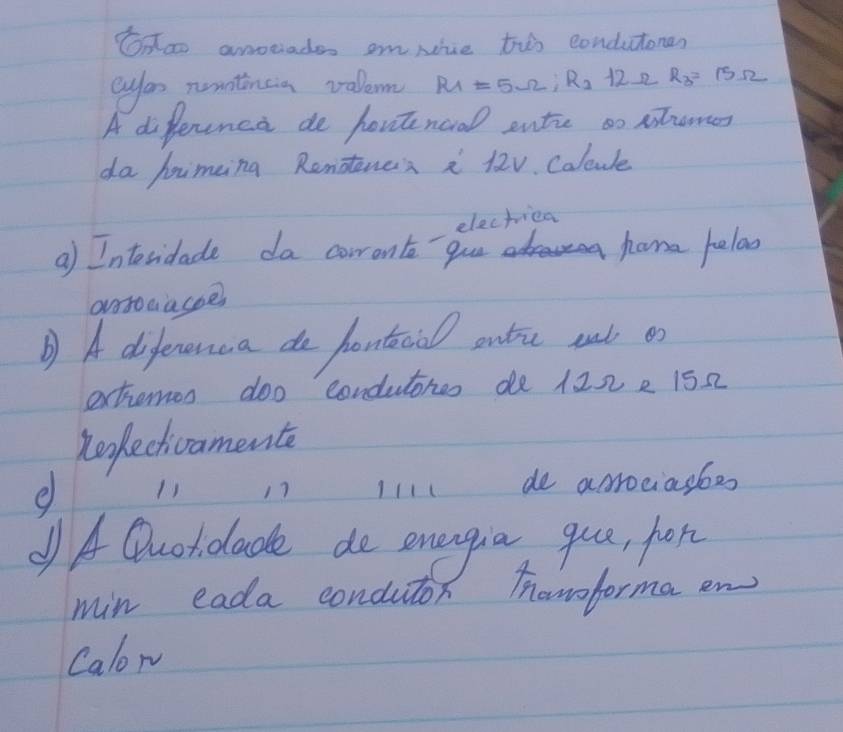 Estão associados em série três condutores
cujas resistência valem R1 = 5Ω; R2 12Ω R3= 15Ω
A diferenca de pontencial entre os extremos
da primeira Resistencia é 12V. Calcule
electrica
a) Intesidade da corrente que passa pelas
associaçoes
b) A diferencia de pontecial entre os
extremos dos condutores de 12Ω e 15Ω
respectivamente
c) " " " " de associasões
d) A Quotidade de energia que, por
min cada condutor Transforma em
calor